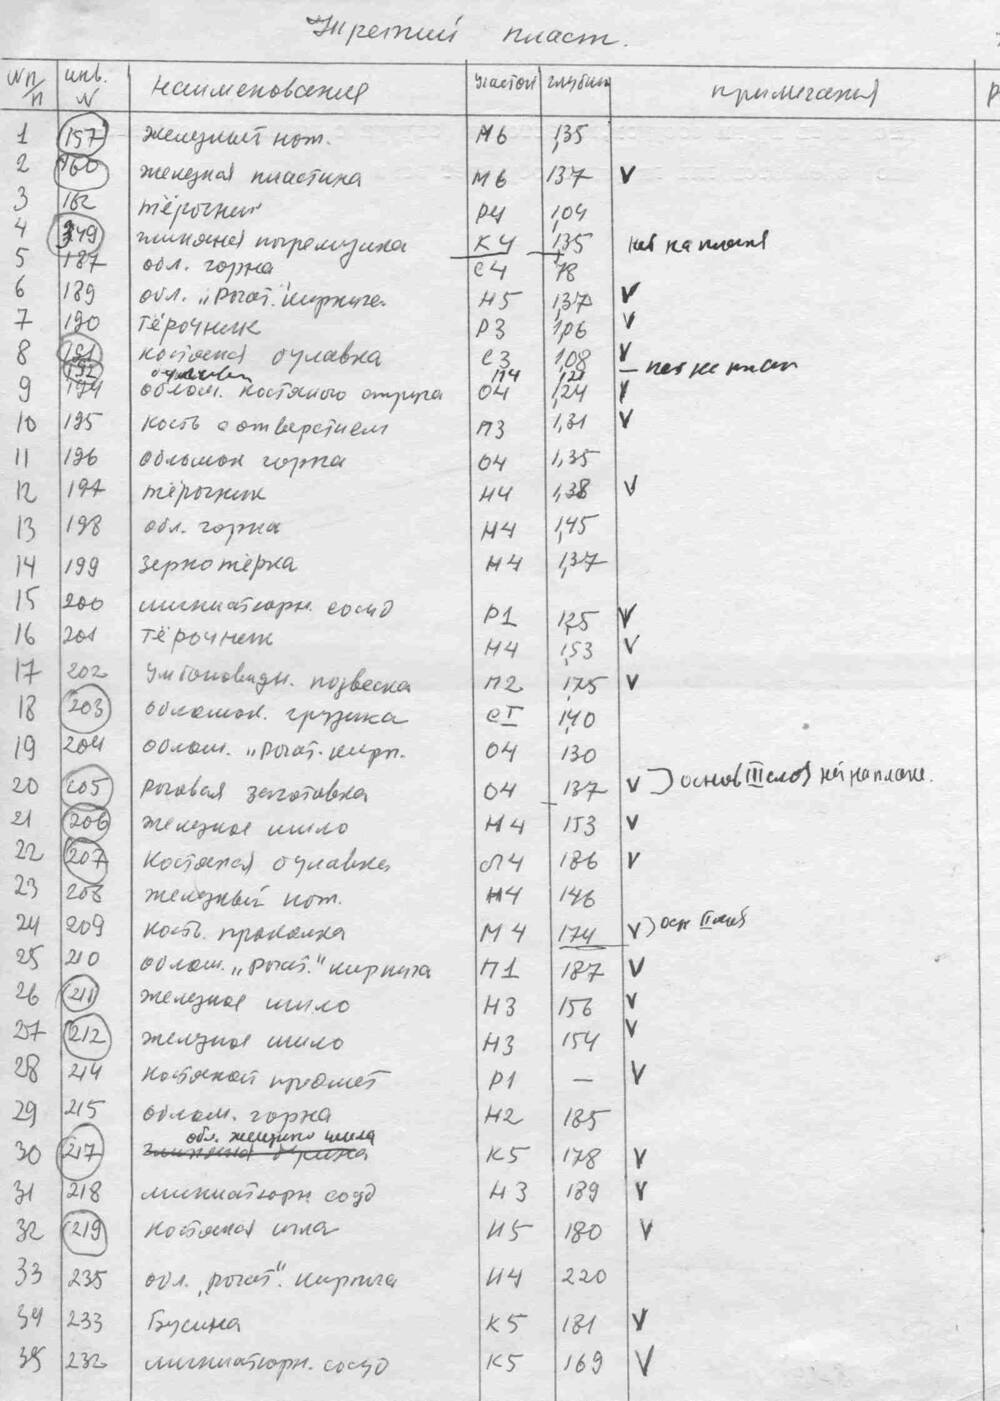 Третий пласт.
№ п/п инв. N наименования участок глубина примечания Р
1 157 железный нож. М6 1,35
2 160 железная пластина М6 137 V
3 162 тёрочник Р4 1,04
4 349 глиняная погремушка К4 135 нет на плане
5 187 обл. горна С4 78
6 189 обл. „Рогат." кирпича Н5 1,37 V
7 190 тёрочник Р3 1,06 V
8 191 костяная булавка С3 1,08 V
192 булавки П4 – нет на плане
9 194 облом. костяного О4 1,24 V
10 195 кость с отверстием П3 1,31 V
11 196 обломок горна О4 1,35
12 197 тёрочник Н4 1,38 V
13 198 обл. горна Н4 1,45
14 199 зернотёрка Н4 1,37
15 200 миниатюрн. сосуд Р1 V
16 201 тёрочник Н4 1,53 V
17 202 Умбоновидн. подвеска П2 1,75 V
18 203 обломок. грузика СI 1,40
19 204 облом. „Рогат. кирп. О4 130
20 205 роговая заготовка О4 137 V основ III слоя нет на плане.
21 206 железное шило Н4 153 V
22 207 костяная булавка 186 V
23 208 железный нож. Н4 146
24 209 кость. проколка М4 174 V осн II слоя
25 210 облом. „Рогат." кирпича П1 187 V
26 211 железное шило Н3 156 V
27 212 железное шило Н3 154 V
28 214 костяной предмет Р1 — V
29 215 облом. горна Н2 185
30 217 обл. железного шила К5 178 V
31 218 миниатюрн сосуд Н3 189 V
32 219 костяная игла И5 180 V
33 235 обл. „рогат". кирпича И4 220
34 233 Бусина К5 181 V
35 232 миниатюрн. сосуд К5 169 V